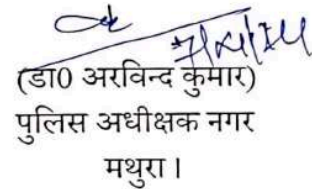 (डा0 अरविन्द कुमार)
पुलिस अधीक्षक नगर
मथुरा।